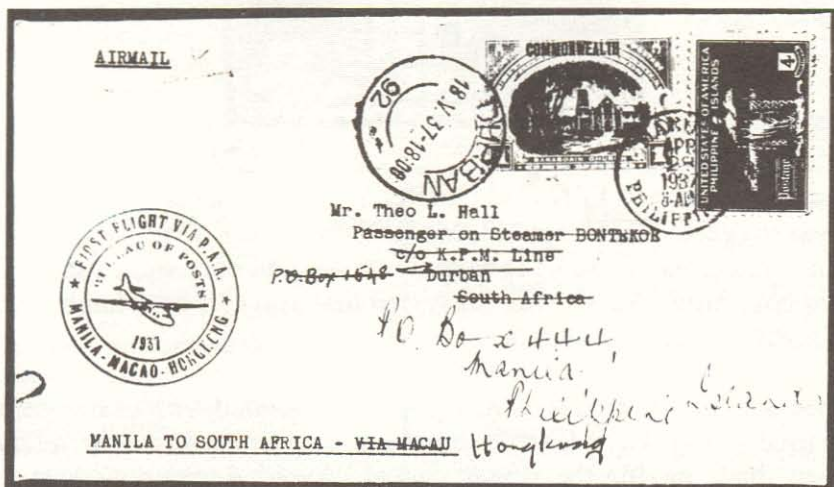 AIRMAIL
COMMONWEALTH
UNITED STATES OF AMERICA
PHILIPPINE ISLANDS
4
Postage
DURBAN
18.V.37-18:00
92
APR
1937
8-AM
FIRST FLIGHT VIA P.A.A.
BUREAU OF POSTS
1937
MANILA-MACAO-HONGKONG
Mr. Theo L. Hall
Passenger on Steamer BONTEKOE
c/o K.P.M. Line
P.O. Box 1548
Durban
South Africa
P.O. Box 444
Manila
Philippine Islands
MANILA TO SOUTH AFRICA - VIA MACAU Hongkong